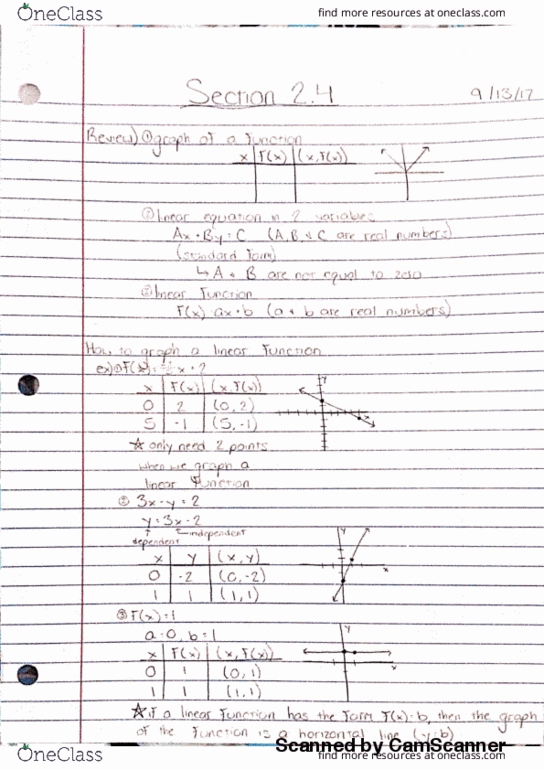 OneClass
find more resources at oneclass.com
Section 2.4
9/13/17
Review) ① graph of a function
x F(x) (x, F(x))
① linear equation in 2 variables
Ax + By = C (A, B, & C are real numbers)
(standard form)
↳ A & B are not equal to zero
② linear function
F(x) ax+b (a & b are real numbers)
How to graph a linear function
ex) ① F(x) = x + 2
x F(x) (x, F(x))
0 2 (0, 2)
5 -1 (5, -1)
☆ only need 2 points
when we graph a
linear function
② 3x - y = 2
y = 3x - 2
dependent independent
x y (x, y)
0 -2 (0, -2)
1 1 (1, 1)
y
x
③ F(x) = 1
a = 0, b = 1
x F(x) (x, F(x))
0 1 (0, 1)
1 1 (1, 1)
y
x
☆ if a linear function has the form F(x) = b, then the graph
of the function is a horizontal line (y = b)
Scanned by CamScanner
OneClass
find more resources at oneclass.com